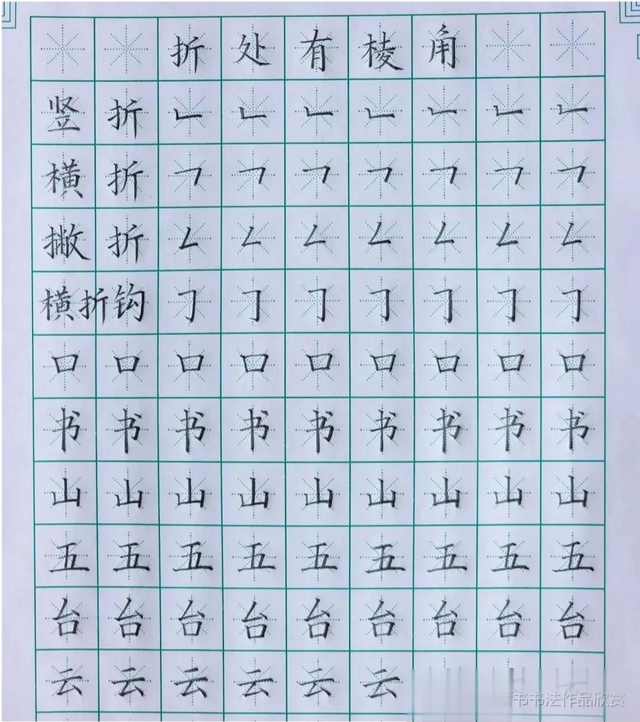 折处有棱角
竖折㇗㇗㇗㇗㇗㇗㇗
横折㇕㇕㇕㇕㇕㇕㇕
撇折㇜㇜㇜㇜㇜㇜㇜
横折钩㇆㇆㇆㇆㇆㇆㇆
口口口口口口口口口
书书书书书书书书书
山山山山山山山山山
五五五五五五五五五
台台台台台台台台台
云云云云云云
书书法作品欣赏